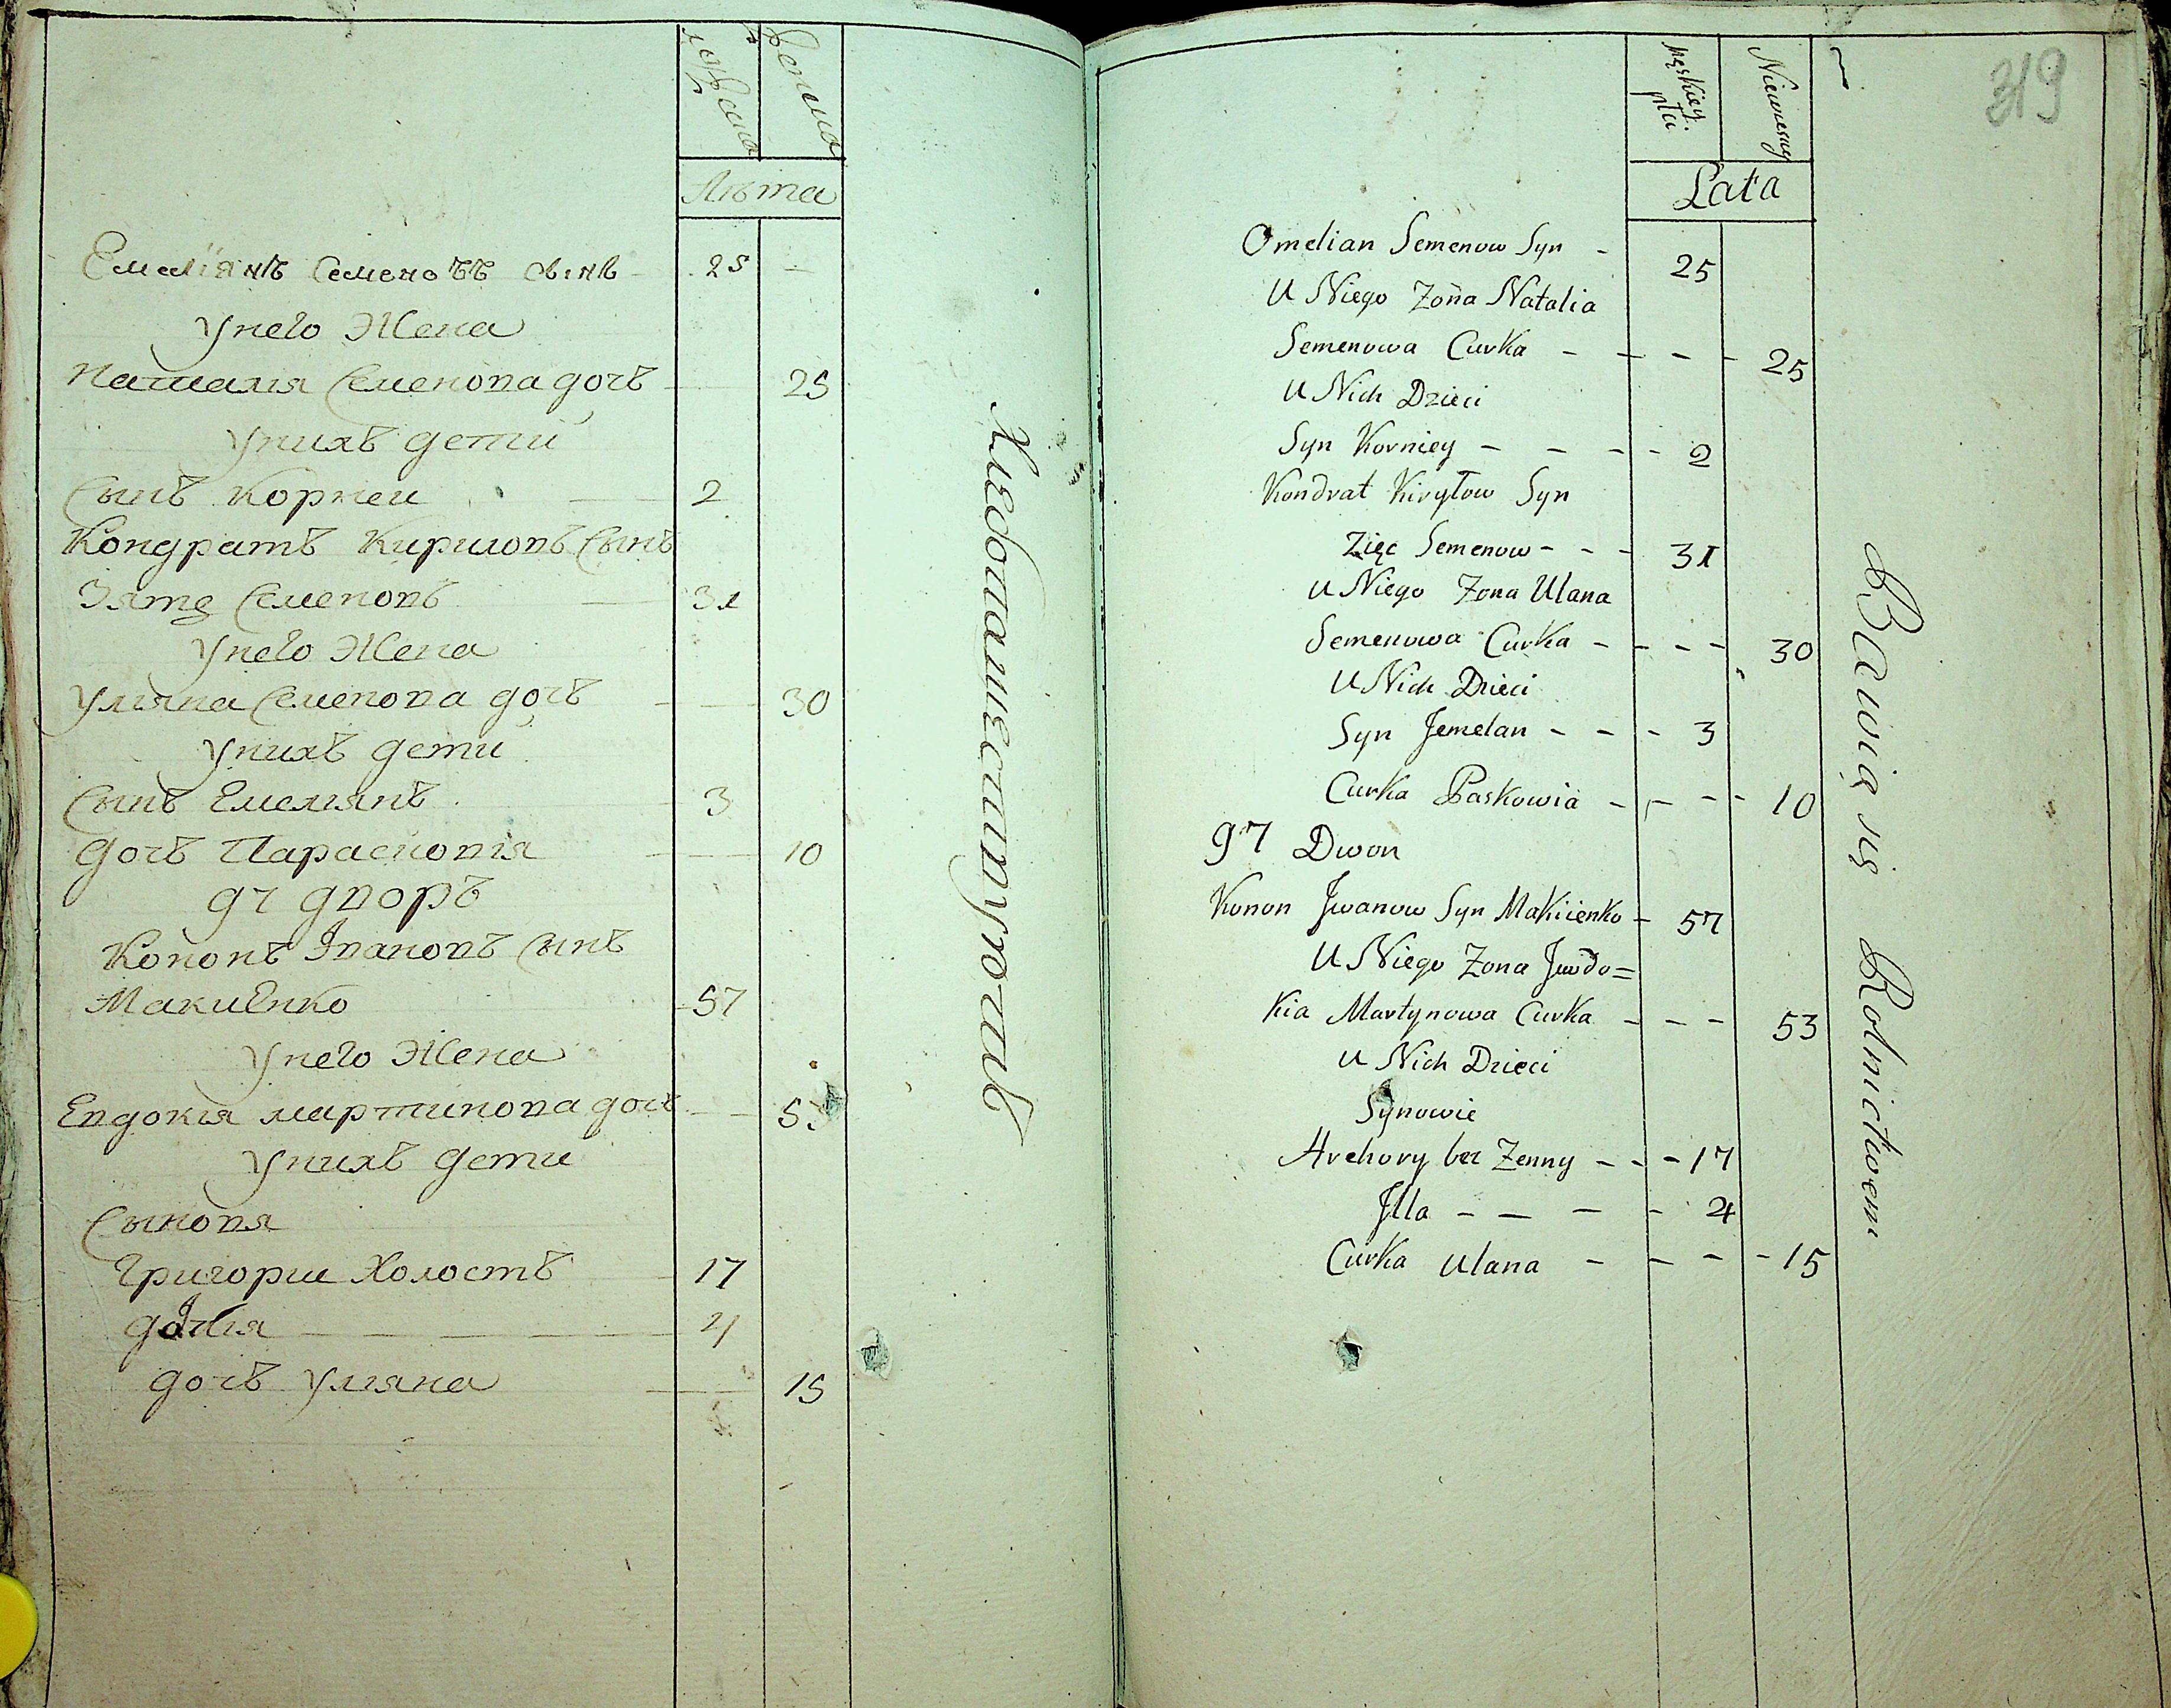 женска
Лѣта
Емелiянъ Семеновъ сынъ 25
У него Жена
Наталiя Семенова дочь 25
У нихъ дети
Сынъ Корнеи 2
Кондратъ Кириловъ Сынъ
Зять Семеновъ 31
У него Жена
Уляна Семенова дочь 30
У нихъ дети
Сынъ Емелянъ 3
дочь Парасковiя 10
97 дворъ
Кононъ Iвановъ Сынъ
Макиенко 57
У него Жена
Евдокiя мартинова дочь 53
У нихъ дети
Сыновя
Григории Холостъ 17
Iлiя 4
дочь Уляна 15
Хлебопашествуютъ
319
męskiey płci
Niewiesciey
Lata
Omelian Semenow Syn - 25
U Niego Zona Natalia
Semenowa Curka - - - - 25
U Nich Dzieci
Syn Korniey - - - - 2
Kondrat Kiryłow Syn
Zięc Semenow - - - 31
U Niego Zona Ulana
Semenowa Curka - - - - 30
U Nich Dzieci
Syn Jemelan - - - 3
Curka Paskowia - - - - 10
97 Dwor
Konon Jwanow Syn Makiienko - 57
U Niego Zona Jwdo=
kia Martynowa Curka - - - 53
U Nich Dzieci
Synowie
Hrehory bez Zenny - - - 17
Jlla - - - - 4
Curka Ulana - - - - 15
BBawią się Rolnictwem